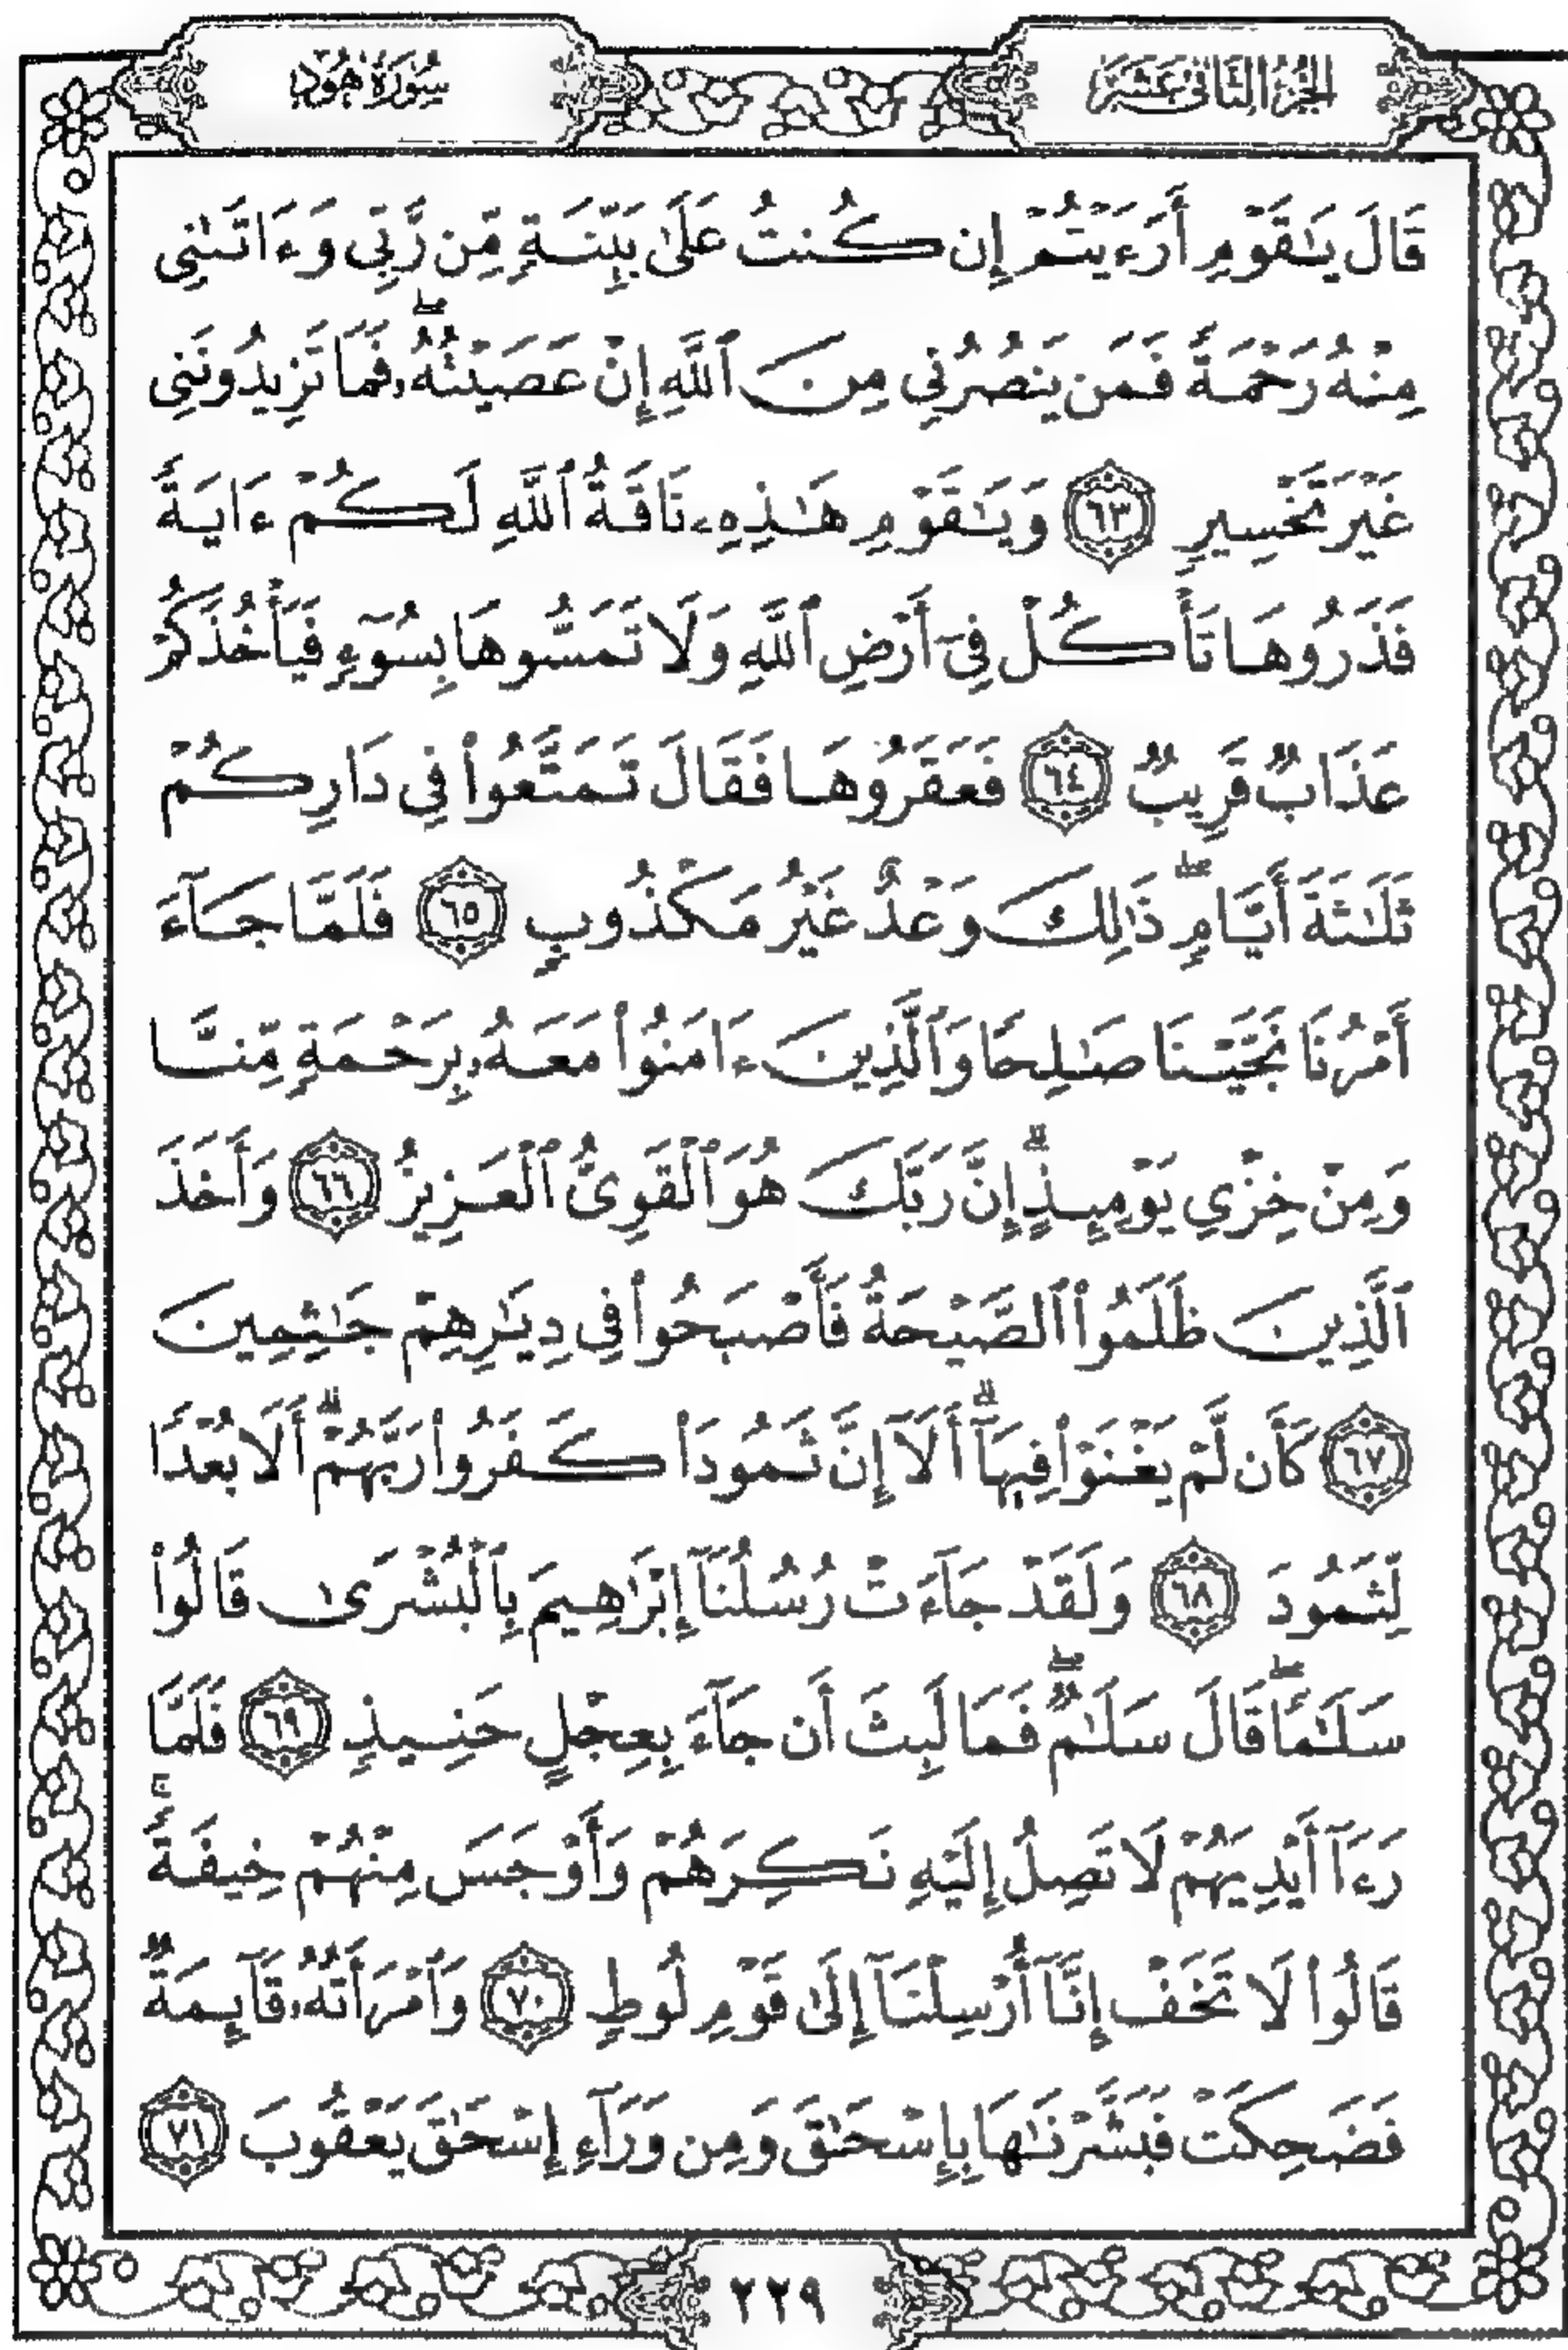 الجزء الثاني عشر
سورة هود
قَالَ يَـٰقَوْمِ أَرَءَيْتُمْ إِن كُنتُ عَلَىٰ بَيِّنَةٍ مِّن رَّبِّي وَءَاتَىٰنِي
مِنْهُ رَحْمَةً فَمَن يَنصُرُنِي مِنَ ٱللَّهِ إِنْ عَصَيْتُهُۥ ۖ فَمَا تَزِيدُونَنِي
غَيْرَ تَخْسِيرٍ ٦٣ وَيَـٰقَوْمِ هَـٰذِهِۦ نَاقَةُ ٱللَّهِ لَكُمْ ءَايَةً
فَذَرُوهَا تَأْكُلْ فِىٓ أَرْضِ ٱللَّهِ وَلَا تَمَسُّوهَا بِسُوٓءٍ فَيَأْخُذَكُمْ
عَذَابٌ قَرِيبٌ ٦٤ فَعَقَرُوهَا فَقَالَ تَمَتَّعُوا۟ فِي دَارِكُمْ
ثَلَـٰثَةَ أَيَّامٍ ۖ ذَٰلِكَ وَعْدٌ غَيْرُ مَكْذُوبٍ ٦٥ فَلَمَّا جَآءَ
أَمْرُنَا نَجَّيْنَا صَـٰلِحًا وَٱلَّذِينَ ءَامَنُوا۟ مَعَهُۥ بِرَحْمَةٍ مِّنَّا
وَمِنْ خِزْيِ يَوْمِئِذٍ ۗ إِنَّ رَبَّكَ هُوَ ٱلْقَوِىُّ ٱلْعَزِيزُ ٦٦ وَأَخَذَ
ٱلَّذِينَ ظَلَمُوا۟ ٱلصَّيْحَةُ فَأَصْبَحُوا۟ فِي دِيَـٰرِهِمْ جَـٰثِمِينَ
٦٧ كَأَن لَّمْ يَغْنَوْا۟ فِيهَآ ۗ أَلَآ إِنَّ ثَمُودَا۟ كَفَرُوا۟ رَبَّهُمْ ۗ أَلَا بُعْدًا
لِّثَمُودَ ٦٨ وَلَقَدْ جَآءَتْ رُسُلُنَآ إِبْرَٰهِيمَ بِٱلْبُشْرَىٰ قَالُوا۟
سَلَـٰمًا ۖ قَالَ سَلَـٰمٌ ۖ فَمَا لَبِثَ أَن جَآءَ بِعِجْلٍ حَنِيذٍ ٦٩ فَلَمَّا
رَءَآ أَيْدِيَهُمْ لَا تَصِلُ إِلَيْهِ نَكِرَهُمْ وَأَوْجَسَ مِنْهُمْ خِيفَةً ۚ
قَالُوا۟ لَا تَخَفْ إِنَّآ أُرْسِلْنَآ إِلَىٰ قَوْمِ لُوطٍ ٧٠ وَٱمْرَأَتُهُۥ قَآئِمَةٌ
فَضَحِكَتْ فَبَشَّرْنَـٰهَا بِإِسْحَـٰقَ وَمِن وَرَآءِ إِسْحَـٰقَ يَعْقُوبَ ٧١
٢٢٩